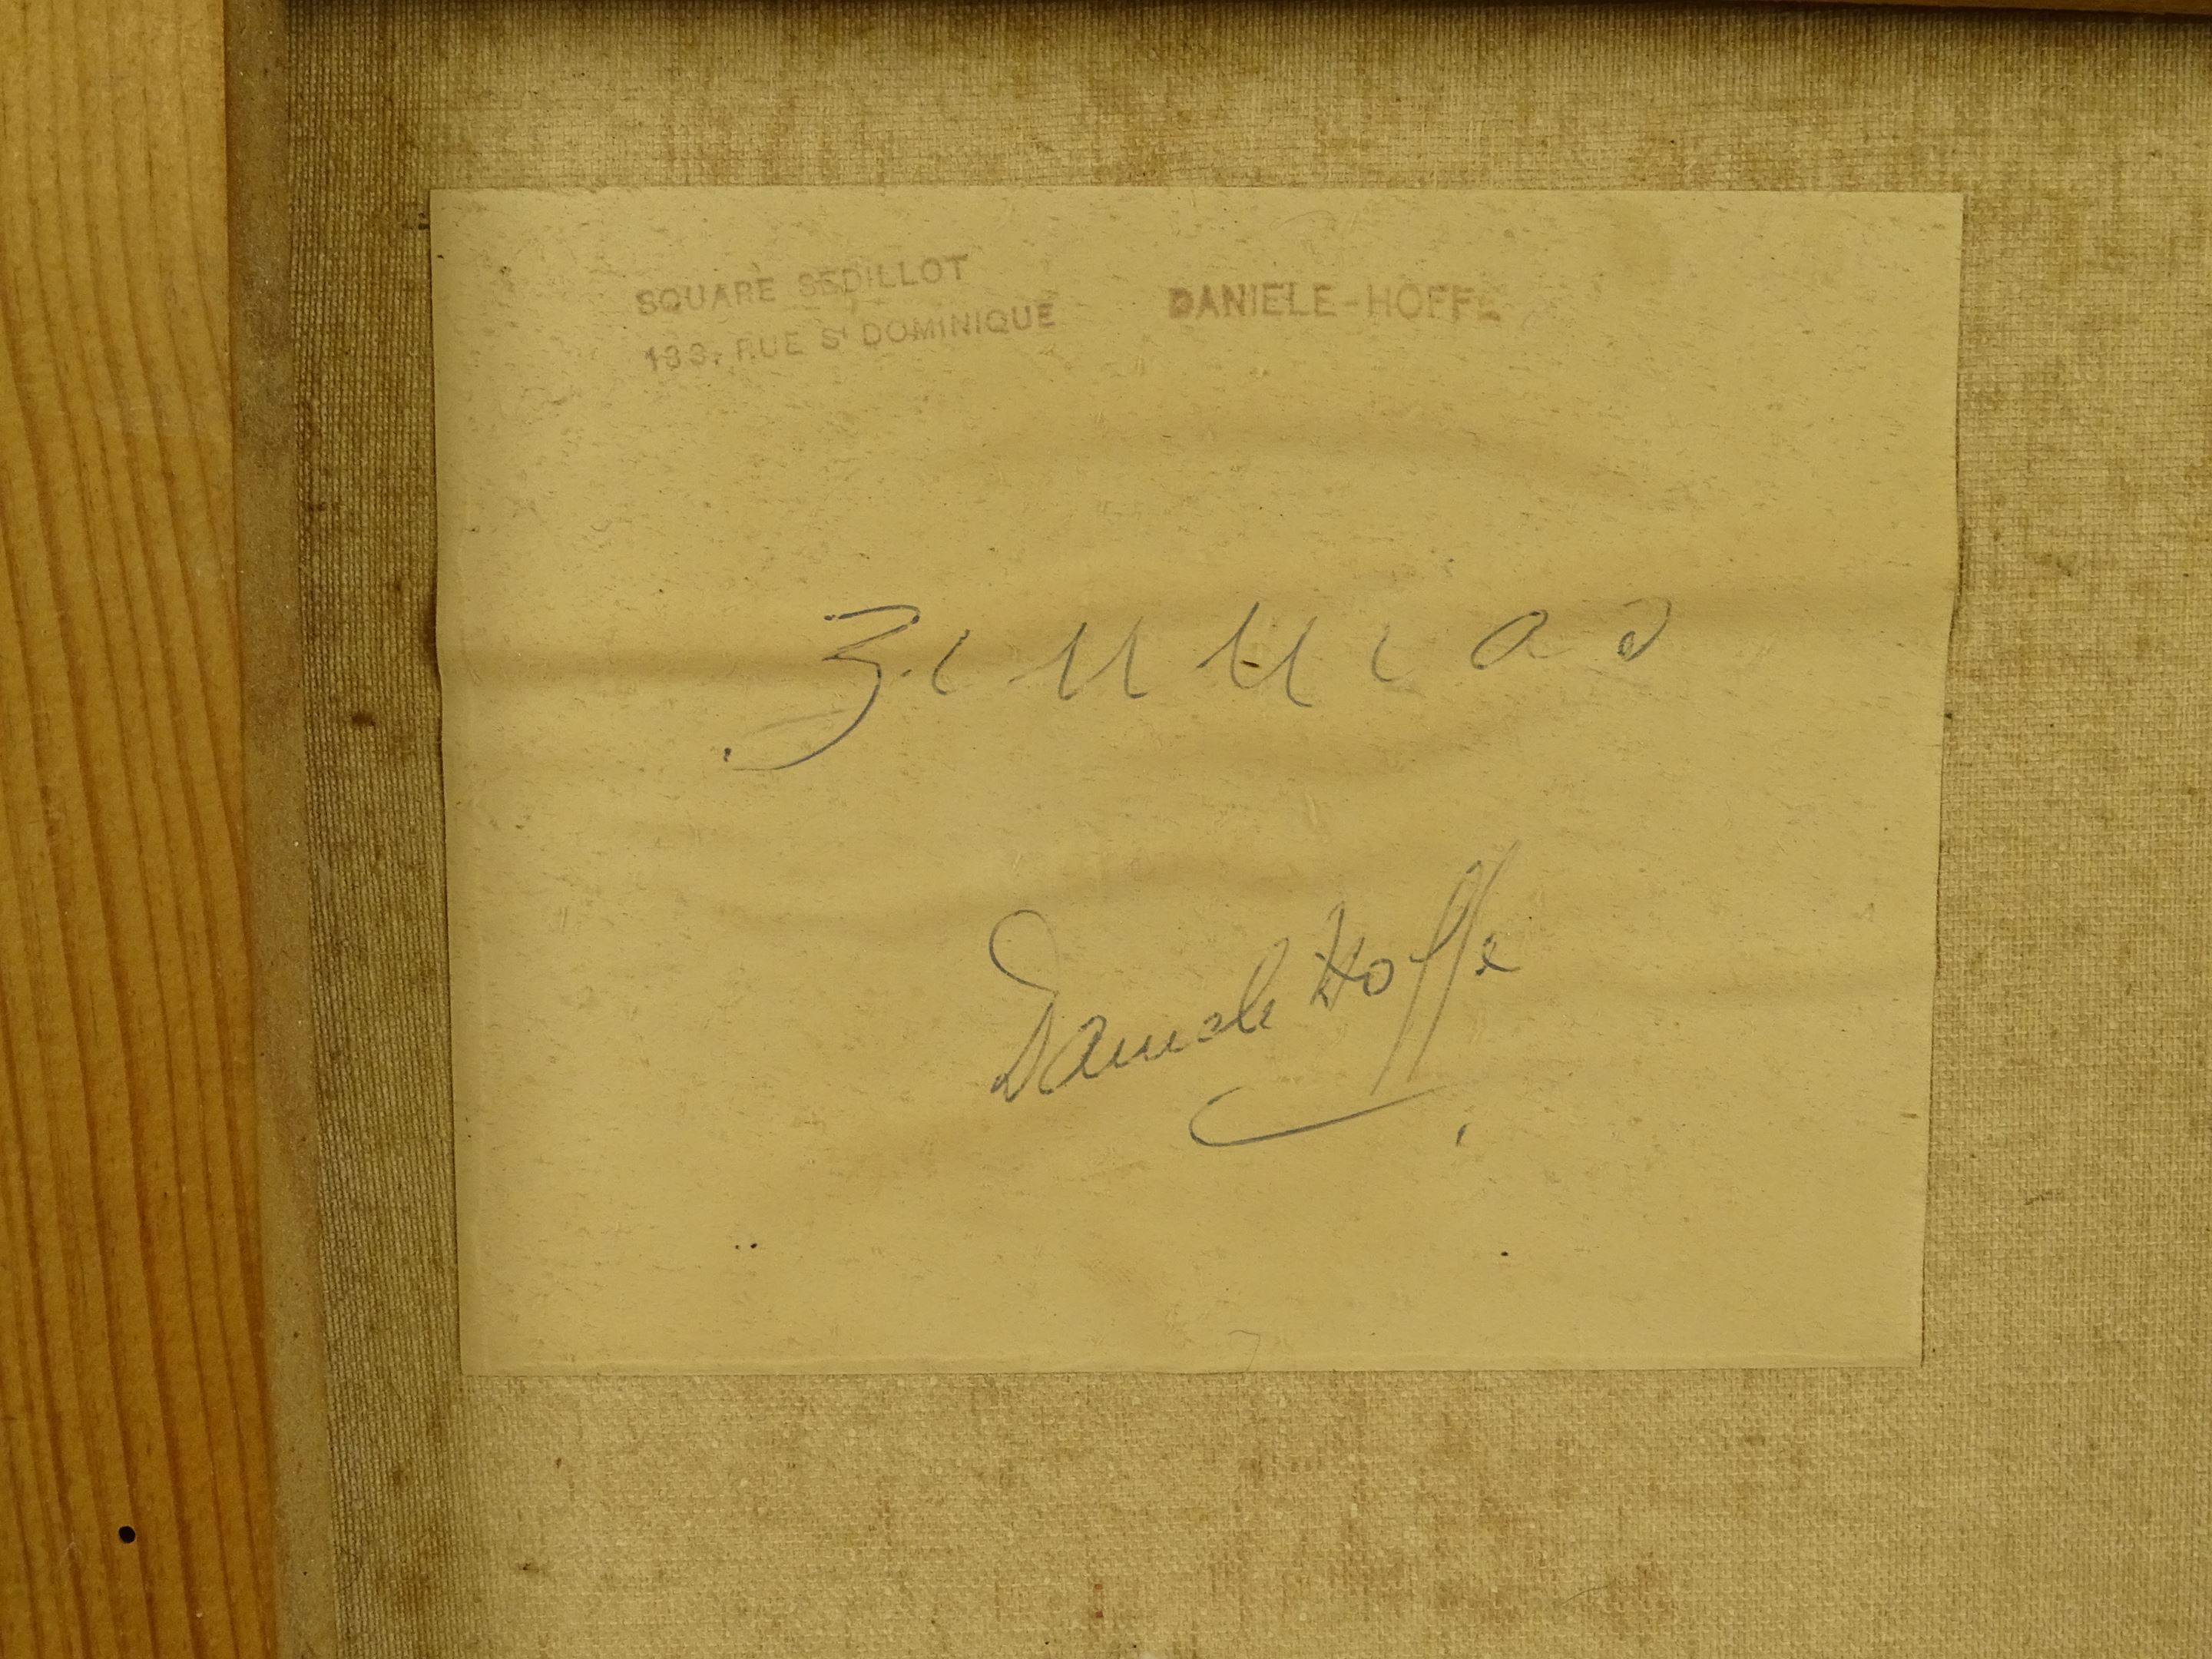 SQUARE SEDILLOT
133, RUE St DOMINIQUE
DANIELE-HOFFE
Zinnias
Daniele Hoffe